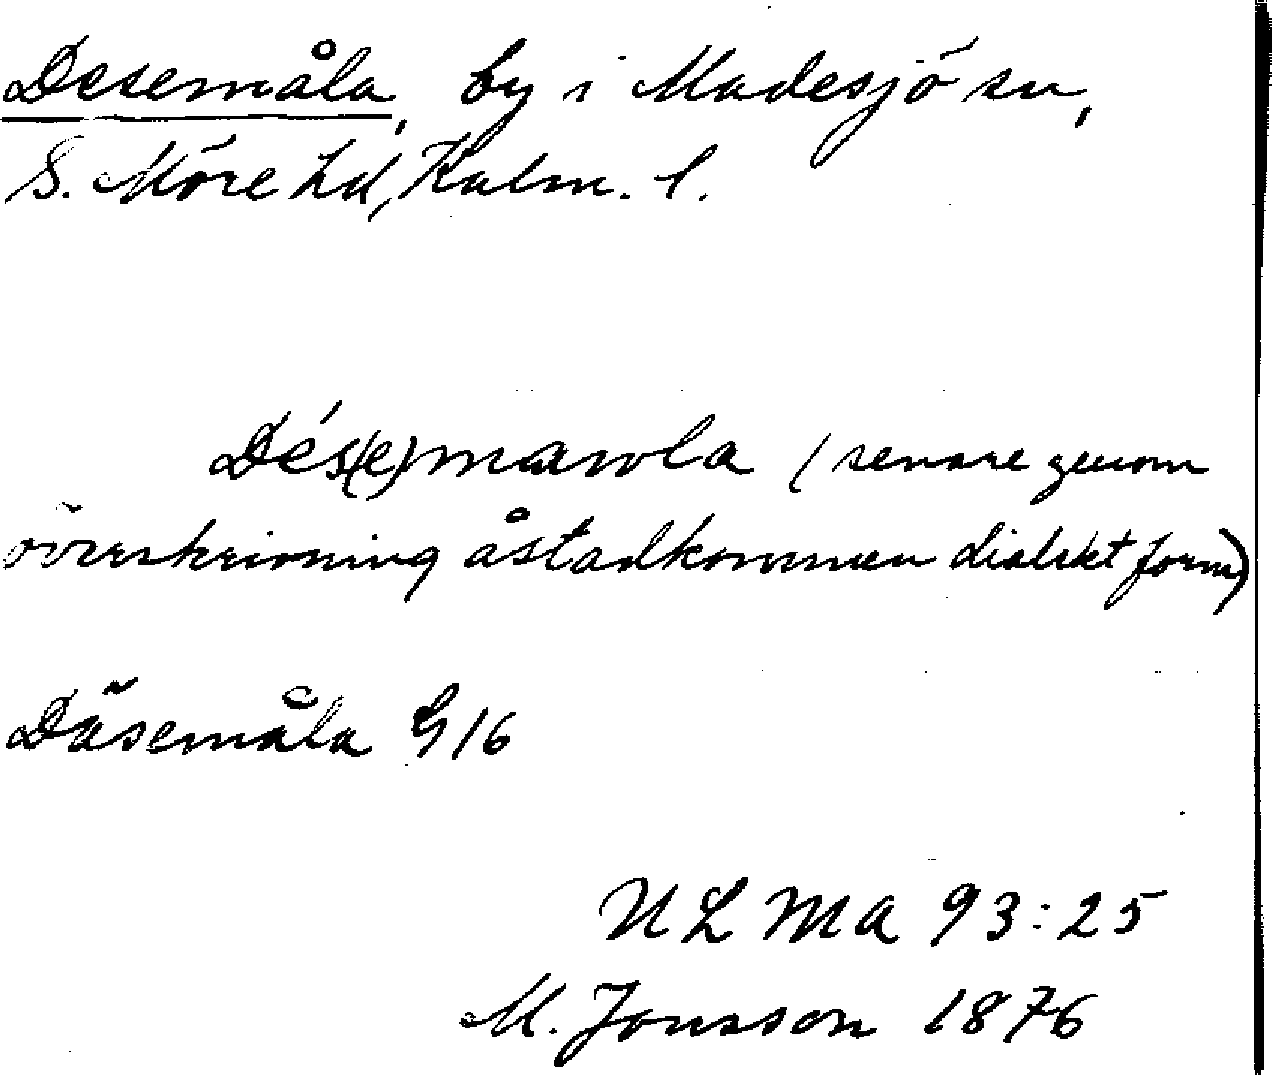 Desemåla, by i Madesjö sn,
S. Möre hd, Kalm. l.
Dés(e)mawla (senare genom
överskrivning åstadkommen dialekt form)
Däsemåla G 16
ULMA 93:25
M. Jonsson 1876